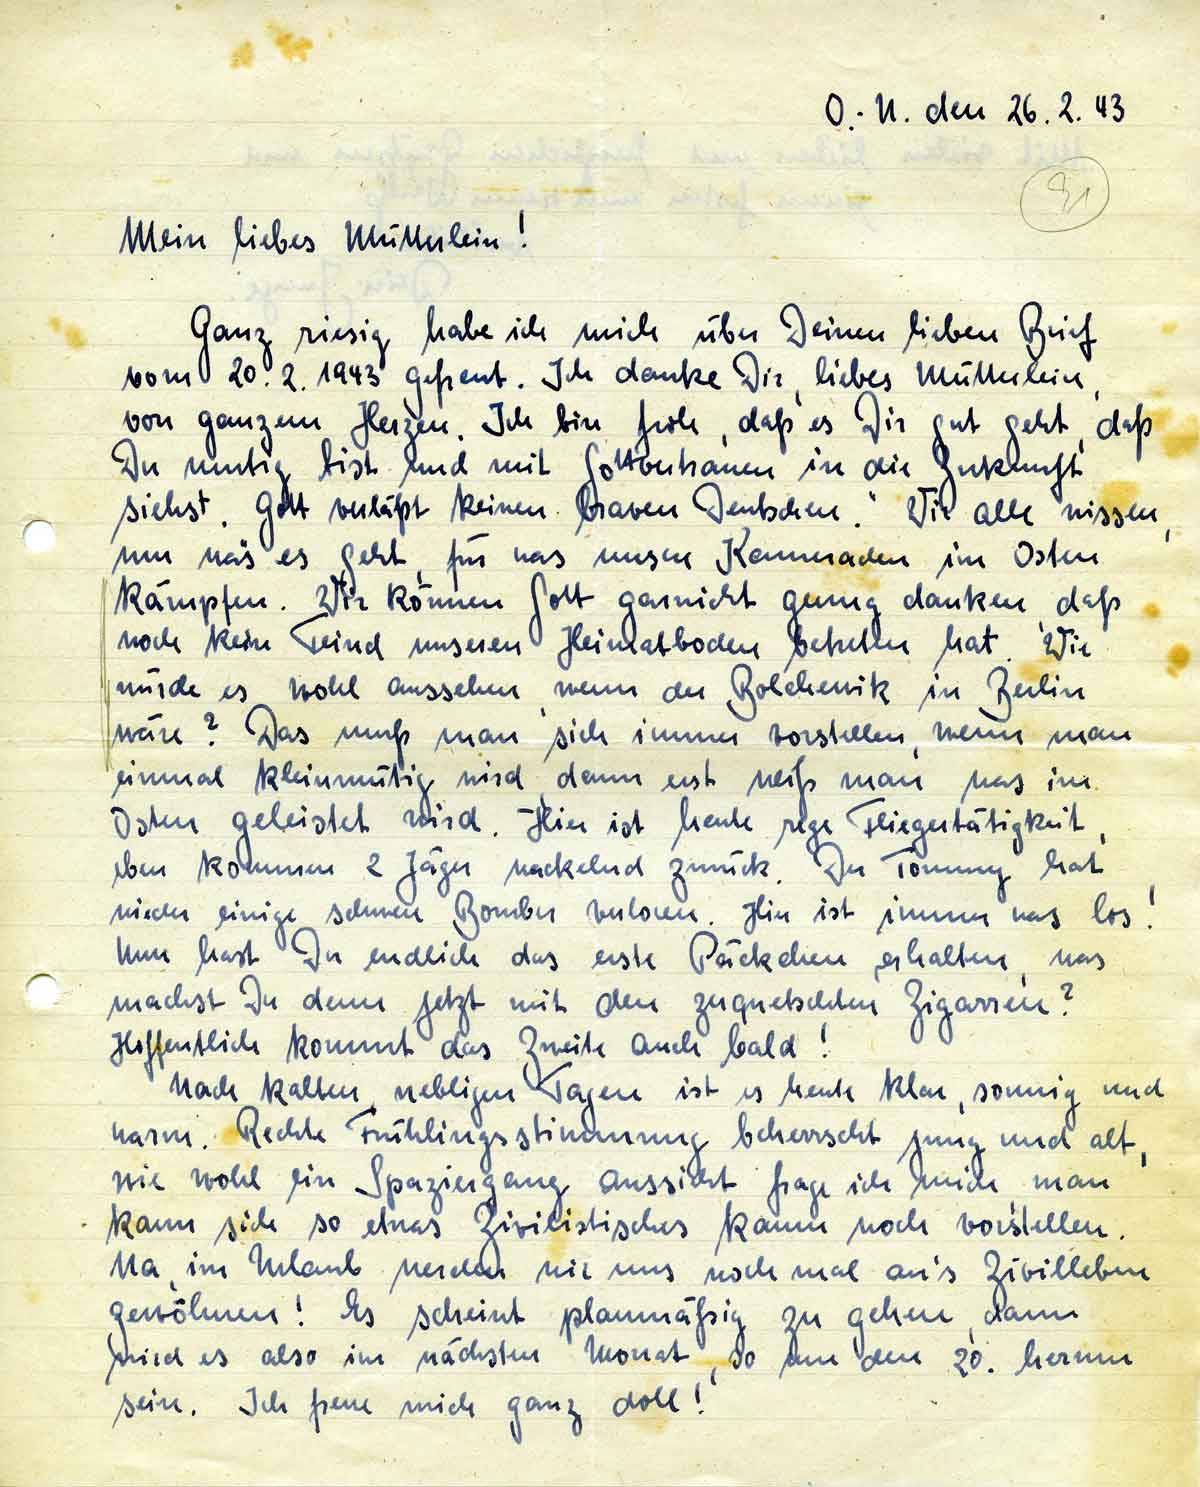 O.-U. den 26.2.43
91
Mein liebes Mütterlein!
Ganz riesig habe ich mich über Deinen lieben Brief
vom 20.2.1943 gefreut. Ich danke Dir, liebes Mütterlein,
von ganzem Herzen. Ich bin froh, daß es Dir gut geht, daß
Du mutig bist und mit Gottvertrauen in die Zukunft
siehst. Gott verläßt keinen braven Deutschen." Wir alle wissen,
um was es geht, für was unsere Kameraden im Osten
kämpfen. Wir können Gott garnicht genug danken, daß
noch kein Feind unseren Heimatboden betreten hat. Wie
würde es wohl aussehen, wenn der Bolchewik in Berlin
wäre? Das muß man sich immer vorstellen, wenn man
einmal kleinmütig wird, dann erst weiß man was im
Osten geleistet wird. Hier ist heute rege Fliegertätigkeit,
eben kommen 2 Jäger wackelnd zurück. Der Tommy hat
wieder einige schwere Bomber verloren. Hier ist immer was los!
Nun hast Du endlich das erste Päckchen erhalten, was
machst Du denn jetzt mit den zerquetschten Zigarren?
Hoffentlich kommt das Zweite auch bald!
Nach kalten, nebligen Tagen ist es heute klar, sonnig und
warm. Rechte Frühlingsstimmung beherrscht jung und alt,
wie wohl ein Spaziergang aussieht frage ich mich, man
kann sich so etwas Zivilistisches kaum noch vorstellen.
Na, im Urlaub werden wir uns noch mal an's Zivilleben
gewöhnen! Es scheint planmäßig zu gehen, dann
wird es also im nächsten Monat, so um den 20. herum
sein. Ich freue mich ganz doll!